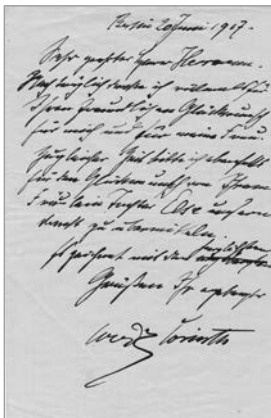 Berlin 20 Juni 1917.
Sehr geehrter Herr Hermann.
Nachträglich danke ich vielmals für
Ihren freundlichen Glückwunsch
für mich und für meine Frau.
Zugleicher Zeit bitte ich ebenfalls
für den Glückwunsch von Ihrem
Fräulein Tochter Else unseren
Dank zu übermitteln.
Es zeichnet mit den herzlichsten
Grüßen Ihr ergebener
Lovis Corinth